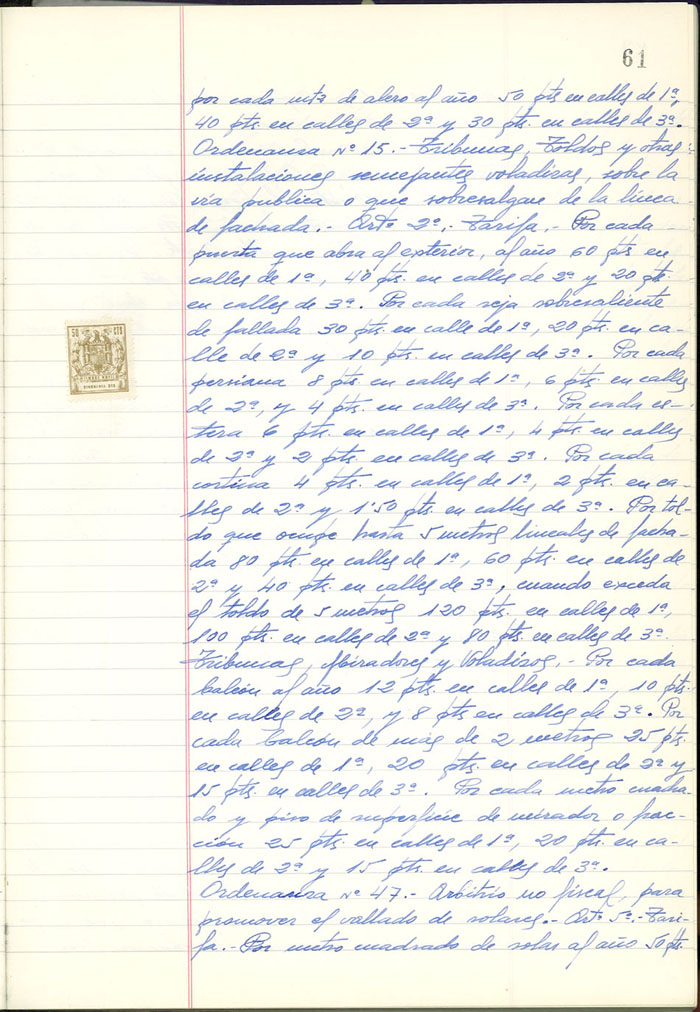 61
por cada mts de alero al año 50 pts en calles de 1ª,
40 pts. en calles de 2ª y 30 pts. en calles de 3ª.
Ordenanza nº 15.- Tribunas, Toldos y otras
instalaciones semejantes voladizas, sobre la
vía publica o que sobresalgan de la línea
de fachada.- Artº 2º.- Tarifa.- Por cada
puerta que abra al exterior, al año 60 pts en
calles de 1ª, 40 pts. en calles de 2ª y 20 pts.
en calles de 3ª. Por cada reja sobresaliente
de fallada 30 pts. en calle de 1ª, 20 pts. en ca-
lle de 2ª y 10 pts. en calles de 3ª. Por cada
persiana 8 pts. en calles de 1ª, 6 pts. en calles
de 2ª, y 4 pts. en calles de 3ª. Por cada es-
tera 6 pts. en calles de 1ª, 4 pts. en calles
de 2ª y 2 pts. en calles de 3ª. Por cada
cortina 4 pts. en calles de 1ª, 2 pts. en ca-
lles de 2ª y 1'50 pts. en calles de 3ª. Por tol-
do que ocupe hasta 5 metros lineales de facha-
da 80 pts. en calles de 1ª, 60 pts. en calles de
2ª y 40 pts. en calles de 3ª, cuando exceda
el toldo de 5 metros 120 pts. en calles de 1ª,
100 pts. en calles de 2ª y 80 pts. en calles de 3ª.
Tribunas, Miradores y Voladizos.- Por cada
balcón al año 12 pts. en calles de 1ª, 10 pts.
en calles de 2ª, y 8 pts en calles de 3ª. Por
cada balcón de mas de 2 metros 25 pts.
en calles de 1ª, 20 pts. en calles de 2ª y
15 pts. en calles de 3ª. Por cada metro cuadra-
do y piso de superficie de mirador o frac-
ción 25 pts. en calles de 1ª, 20 pts. en ca-
lles de 2ª y 15 pts. en calles de 3ª.
Ordenanza nº 47.- Arbitrio no fiscal, para
promover el vallado de solares.- Artº 5º.- Tari-
fa.- Por metro cuadrado de solar al año 50 pts.
50 CTS